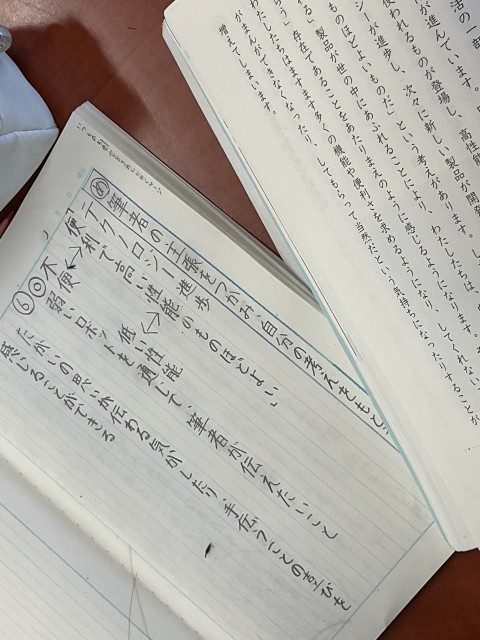 活の一部
が進んでいます。
使われるものが登場し、高性能
が進歩し、次々に新しい製品が開発
ものほどよいものだ」という考えがあります。
製品が世の中にあふれることにより、わたしたちは、
存在であることをあたりまえのように感じるようになります。
わたしたちはますます多くの機能や便利さを求めるようになり、してくれない
がまんができなくなったり、してもらって当然だという気持ちになったりすることが
増えてしまいます。
め 筆者の主張をつかみ、自分の考えをもとう
テクノロジー進歩
「便利で高い性能のものほどよい」
不便 低い性能
⑥◎弱いロボットを通して、筆者が伝えたいこと
たがいの思いが伝わる気がしたり、手伝うことの喜びを
感じることができる